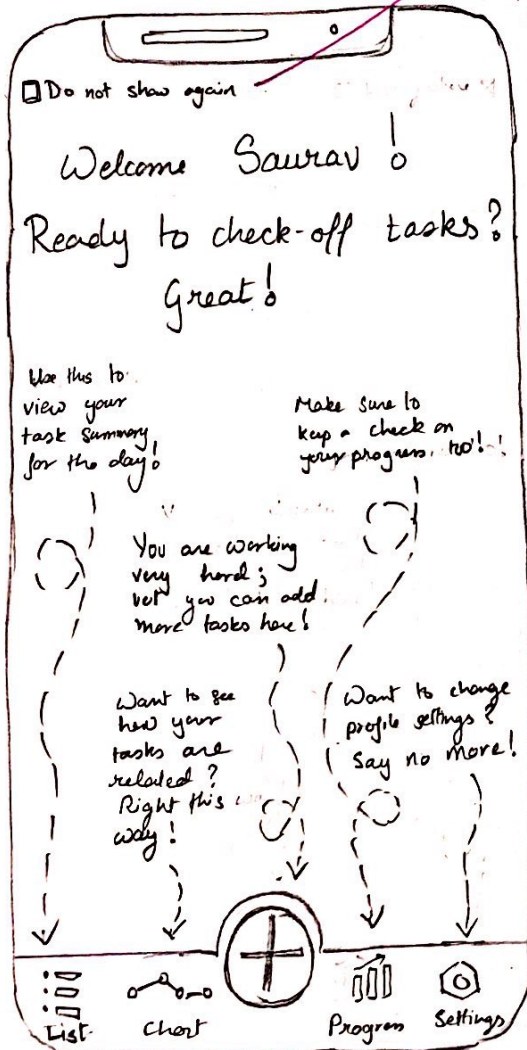 Do not show again
Welcome Saurav!
Ready to check-off tasks?
Great!
Use this to
view your
task summary
for the day!
Make sure to
keep a check on
your progress, too!
You are working
very hard;
but you can add
more tasks here!
Want to see
how your
tasks are
related?
Right this
way!
Want to change
profile settings?
Say no more!
List
Chart
Progress
Settings